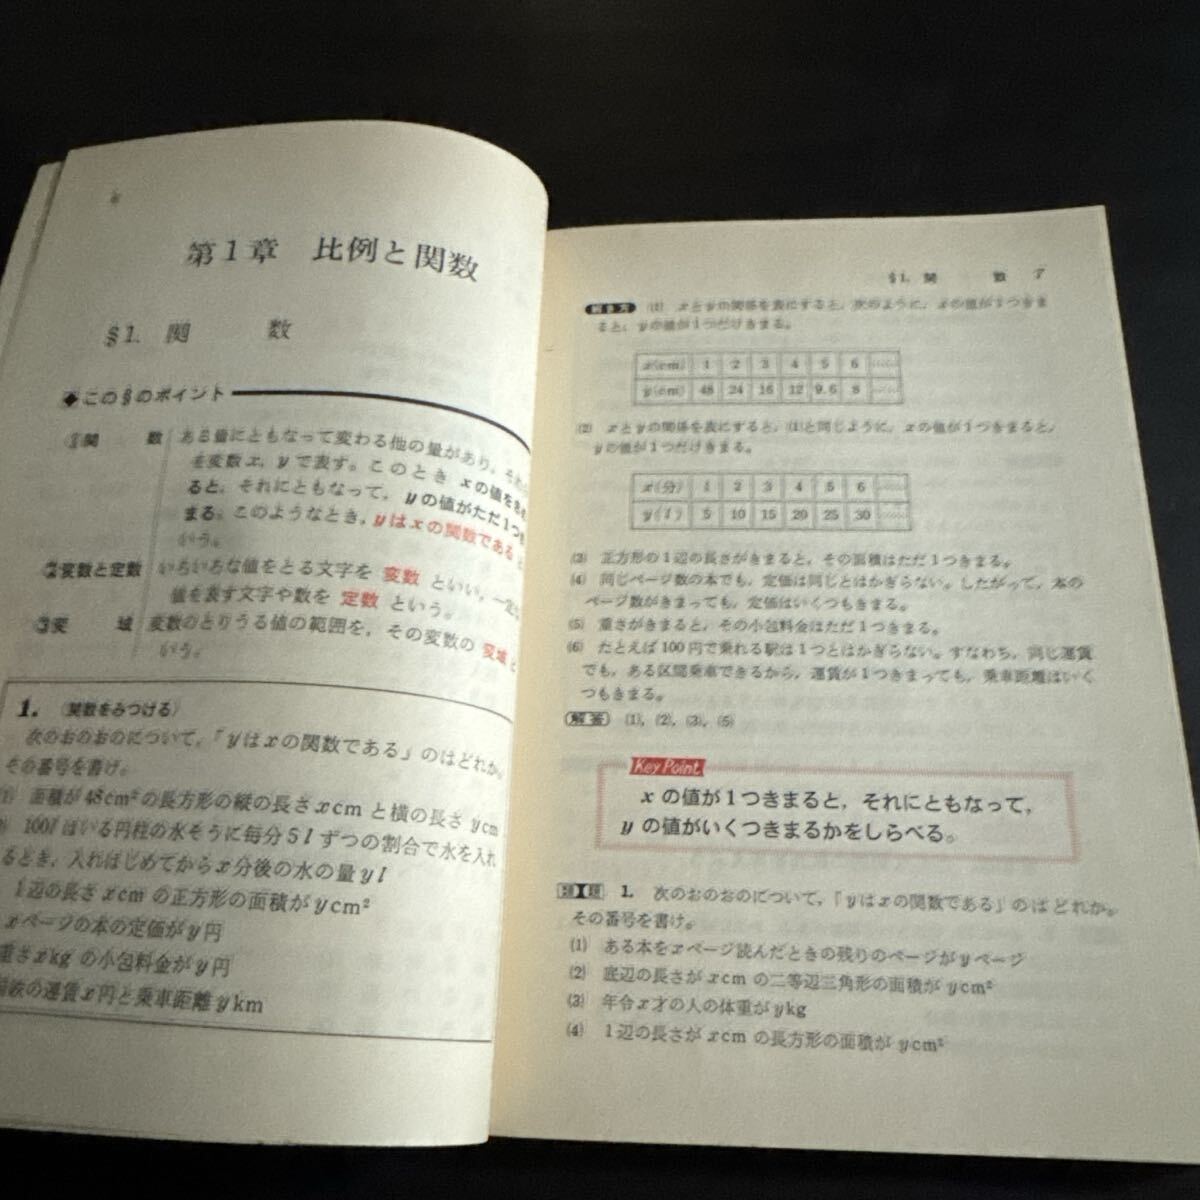 6
第1章 比例と関数
§1. 関 数
◆この§のポイント
①関 数 ある量にともなって変わる他の量があり，それ
を変数x，yで表す。このとき xの値を
ると，それにともなって，yの値がただ1つき
まる。このようなとき，yはxの関数である
いう。
②変数と定数 いろいろな値をとる文字を 変数 といい，一定
値を表す文字や数を 定数 という。
③変 域 変数のとりうる値の範囲を，その変数の 変域 と
いう。
1. (関数をみつける)
次のおのおのについて，「yはxの関数である」のはどれか。
その番号を書け。
面積が48cm²の長方形の縦の長さxcmと横の長さycm
100lはいる円柱の水そうに毎分5lずつの割合で水を入れ
るとき，入れはじめてからx分後の水の量yl
1辺の長さxcmの正方形の面積がycm²
xページの本の定価がy円
重さxkgの小包料金がy円
鉄の運賃x円と乗車距離ykm
§1. 関 数 7
解き方 (1) xとyの関係を表にすると，次のように，xの値が1つきま
ると，yの値が1つだけきまる。
x(cm) 1 2 3 4 5 6 ……
y(cm) 48 24 16 12 9.6 8 ……
(2) xとyの関係を表にすると，(1)と同じように，xの値が1つきまると，
yの値が1つだけきまる。
x(分) 1 2 3 4 5 6 ……
y(l) 5 10 15 20 25 30 ……
(3) 正方形の1辺の長さがきまると，その面積はただ1つきまる。
(4) 同じページ数の本でも，定価は同じとはかぎらない。したがって，本の
ページ数がきまっても，定価はいくつもきまる。
(5) 重さがきまると，その小包料金はただ1つきまる。
(6) たとえば100円で乗れる駅は1つとはかぎらない。すなわち，同じ運賃
でも，ある区間乗車できるから，運賃が1つきまっても，乗車距離はいく
つもきまる。
解答 (1)，(2)，(3)，(5)
Key Point
xの値が1つきまると，それにともなって，
yの値がいくつきまるかをしらべる。
類題 1. 次のおのおのについて，「yはxの関数である」のはどれか。
その番号を書け。
(1) ある本をxページ読んだときの残りのページがyページ
(2) 底辺の長さがxcmの二等辺三角形の面積がycm²
(3) 年令x才の人の体重がykg
(4) 1辺の長さがxcmの長方形の面積がycm²